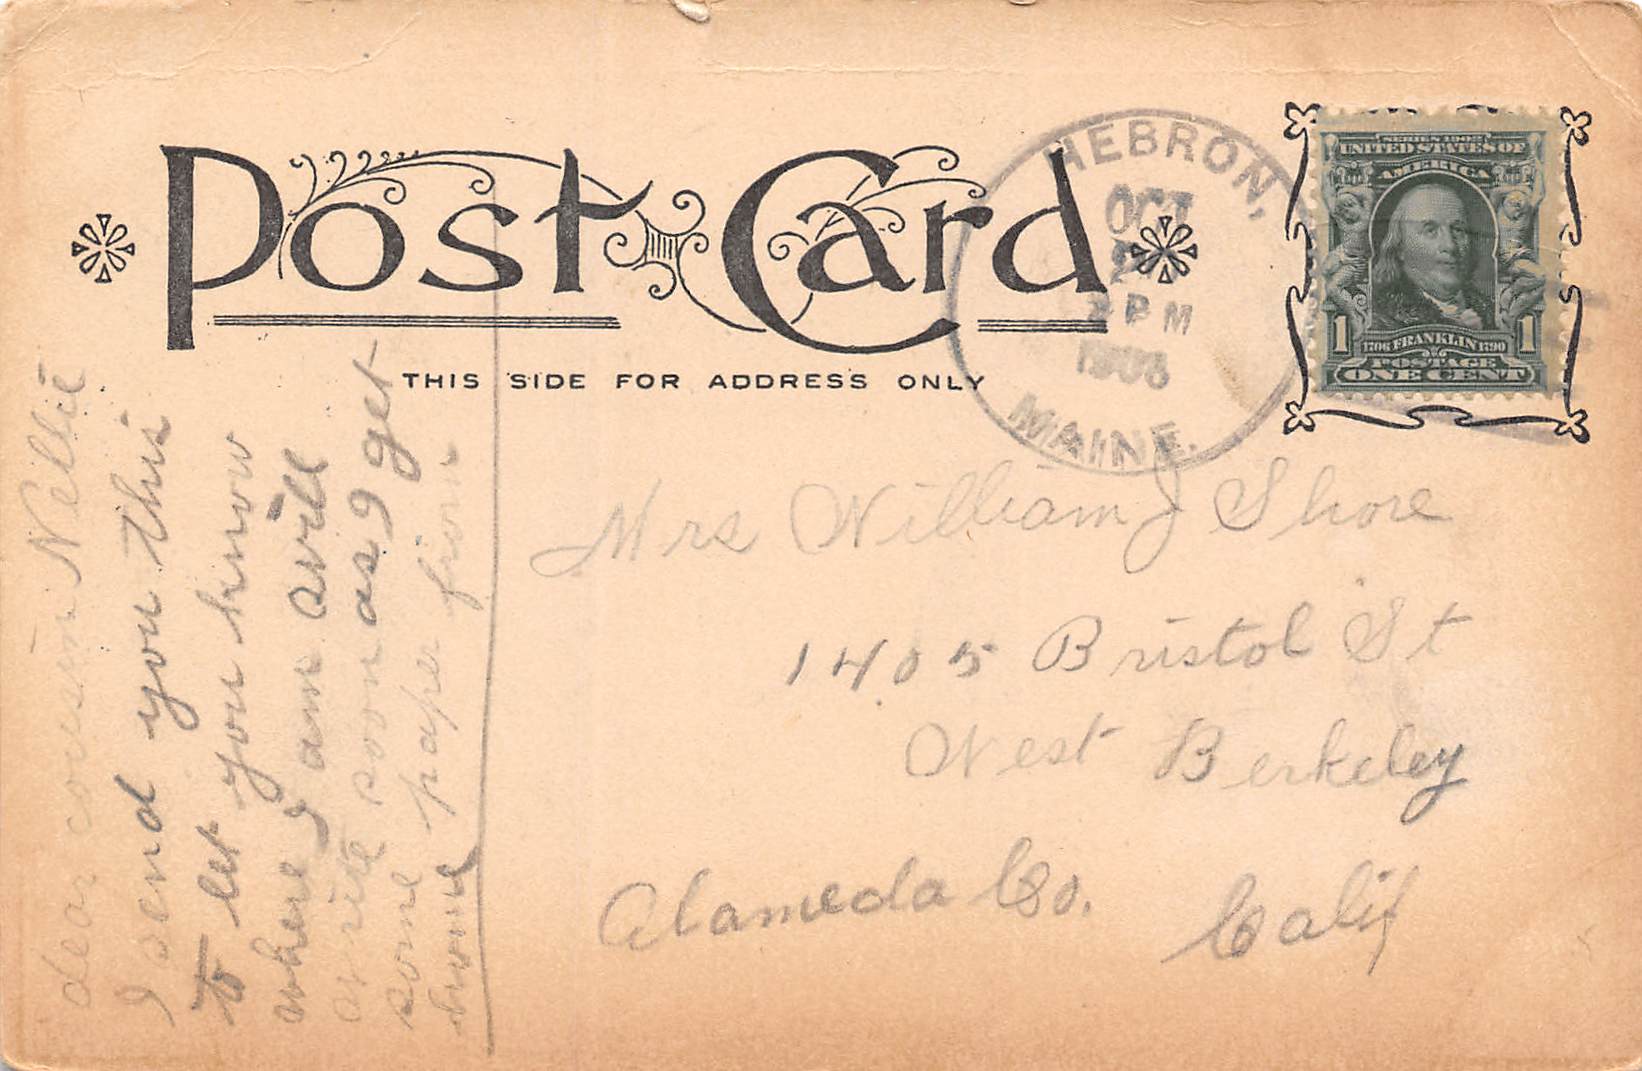 Post Card
THIS SIDE FOR ADDRESS ONLY
HEBRON,
OCT
2 PM
MAINE.
SERIES 1902
UNITED STATES OF
AMERICA
1 1
1706 FRANKLIN 1790
POSTAGE
ONE CENT
Mrs William J Shore
1405 Bristol St
West Berkeley
Alameda Co. Calif
dear cousin Nellie
I send you this
to let you know
where I am will
write soon as I get
some paper from
home